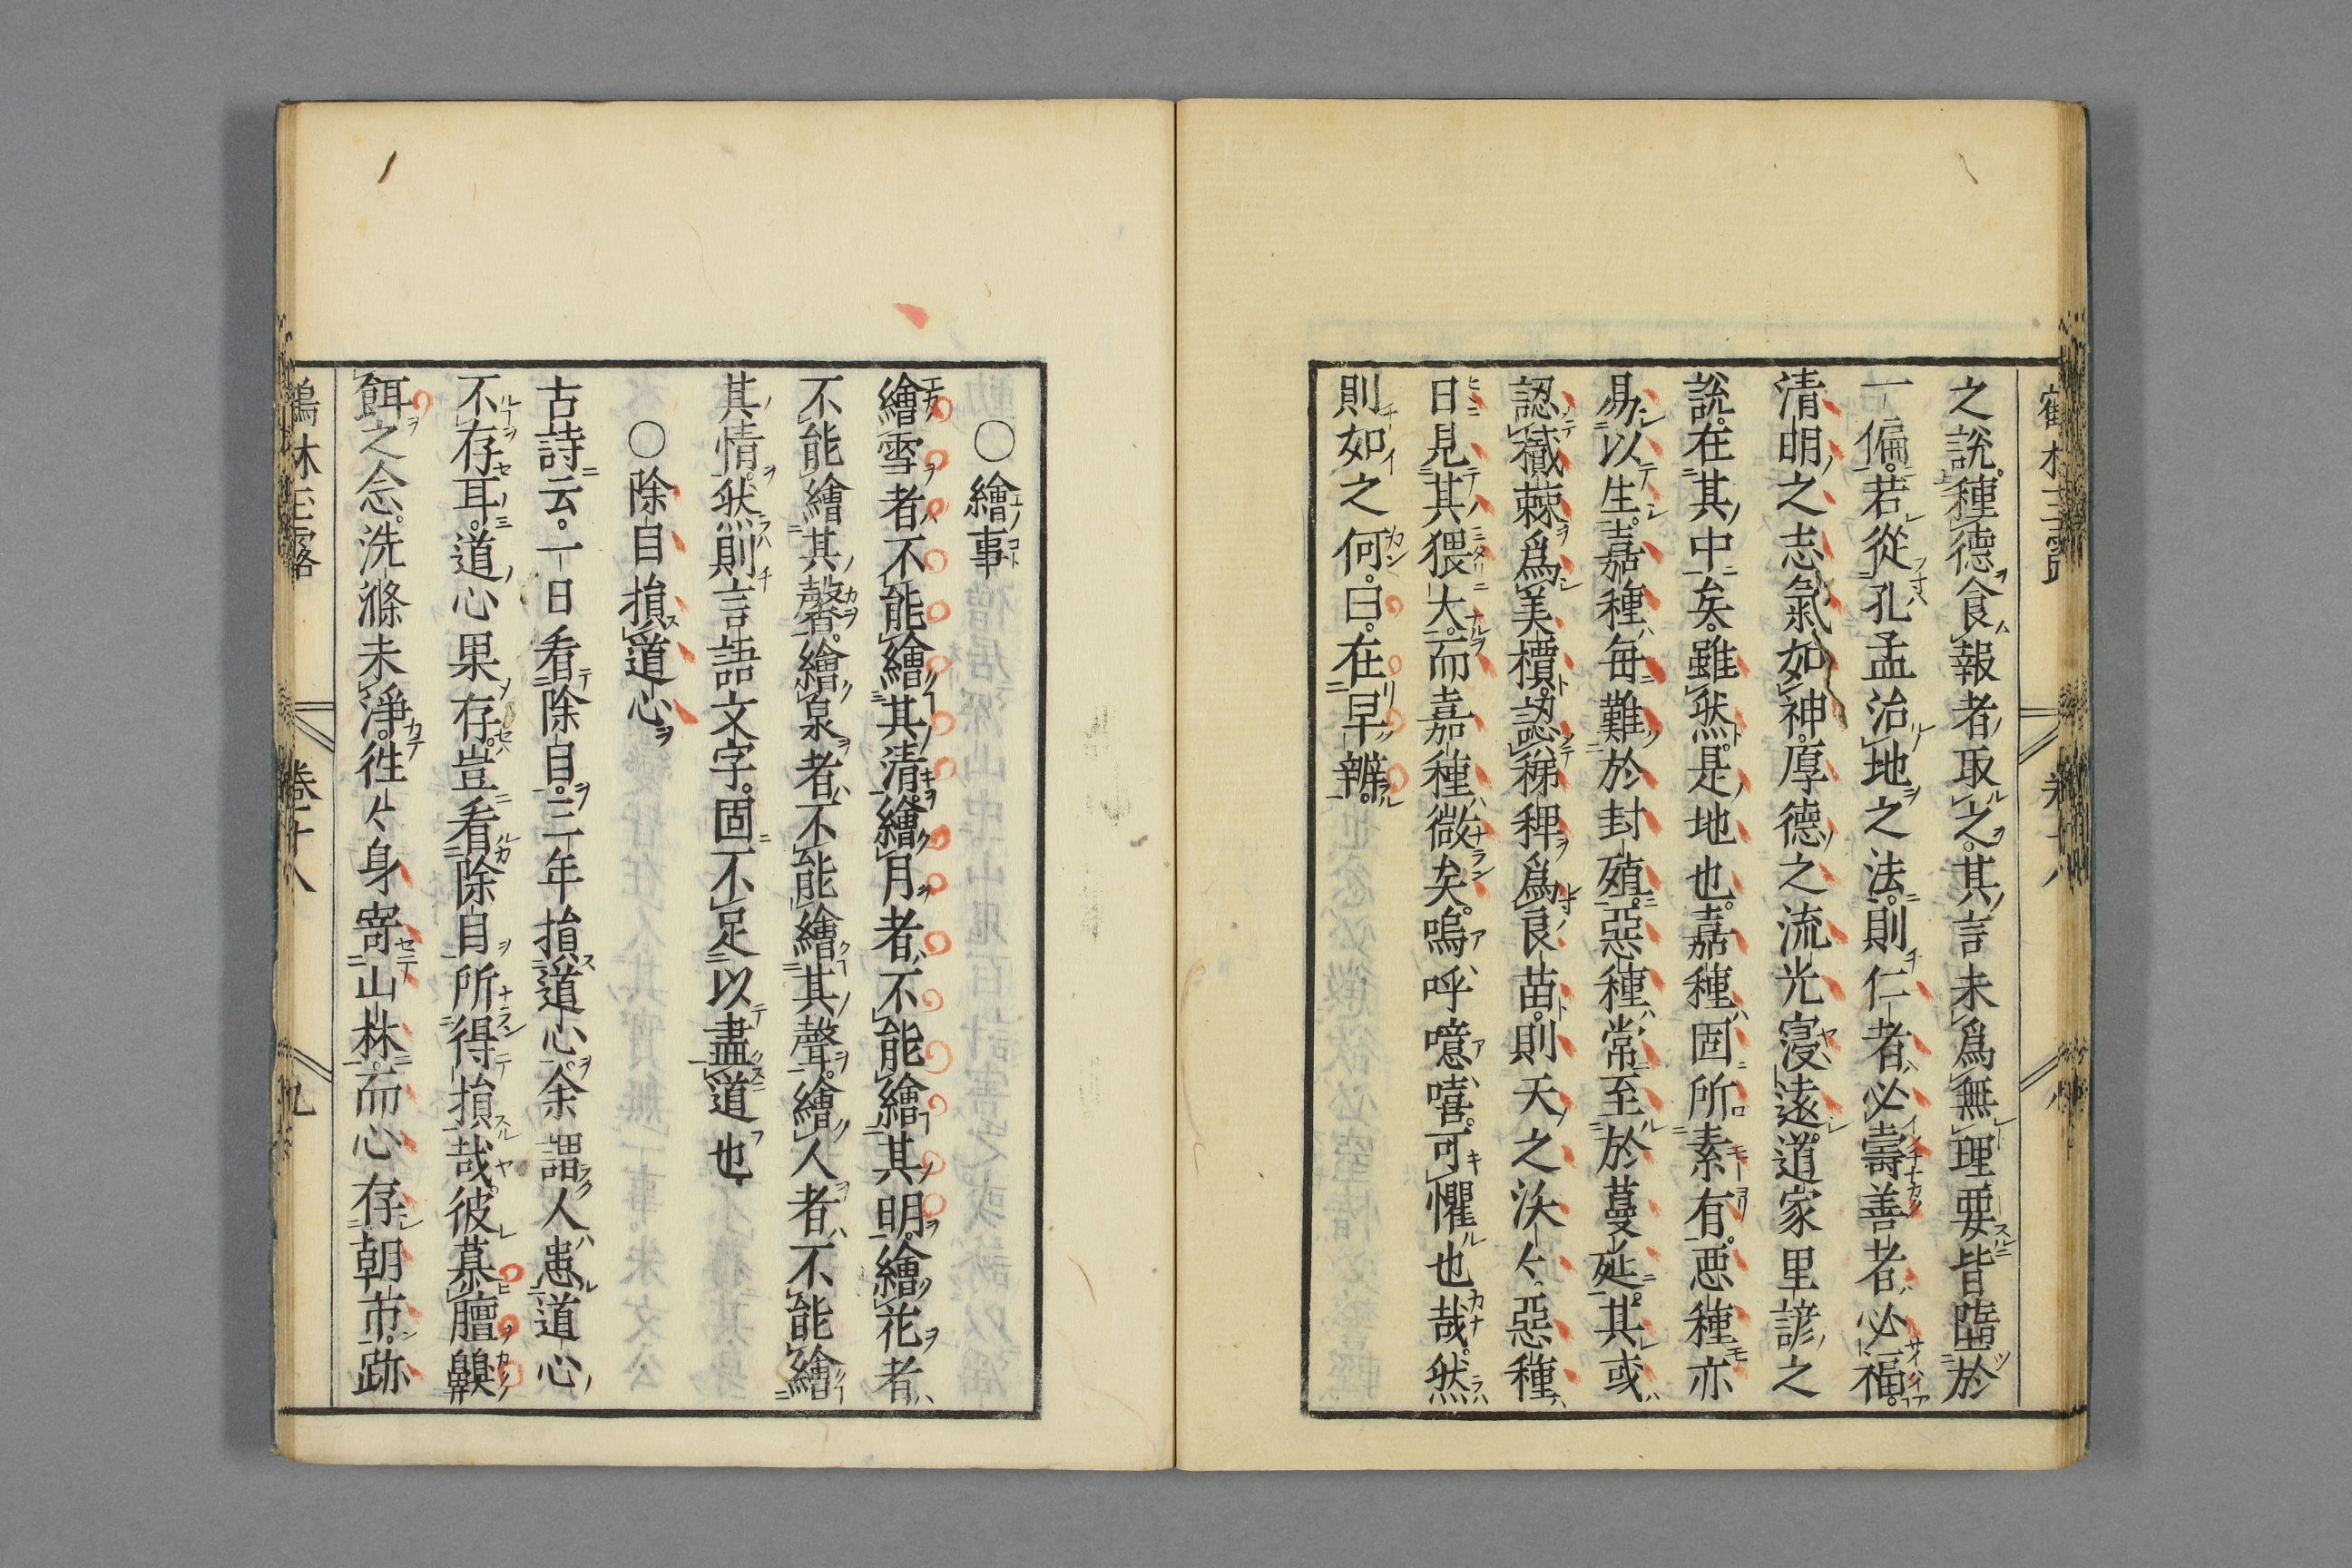 之說。種德食報者取之。其言未爲無理。要皆墮於
一偏。若從孔孟治地之法。則仁者必壽。善者必福。
清明之志氣如神。厚德之流光寖遠。道家里諺之
說。在其中矣。雖然。是地也。嘉種固所素有。惡種亦
易以生。嘉種毎難於封殖。惡種常至於蔓延。其或
認樲棘爲美檟。認稊稗爲良苗。則天之沃々。惡種
日見其猥大。而嘉種微矣。嗚呼噫嘻。可懼也哉。然
則如之何。曰。在早辨。
〇繪事
繪雪者不能繪其清。繪月者不能繪其明。繪花者
不能繪其馨。繪泉者不能繪其聲。繪人者不能繪
其情。然則言語文字。固不足以盡道也
〇除目損道心
古詩云。一日看除目。三年損道心。余謂人患道心
不存耳。道心果存。豈看除目所得損哉。彼慕膻齅
餌之念。洗滌未淨。徃々身寄山林。而心存朝市。跡
鶴林玉露 卷十八 九